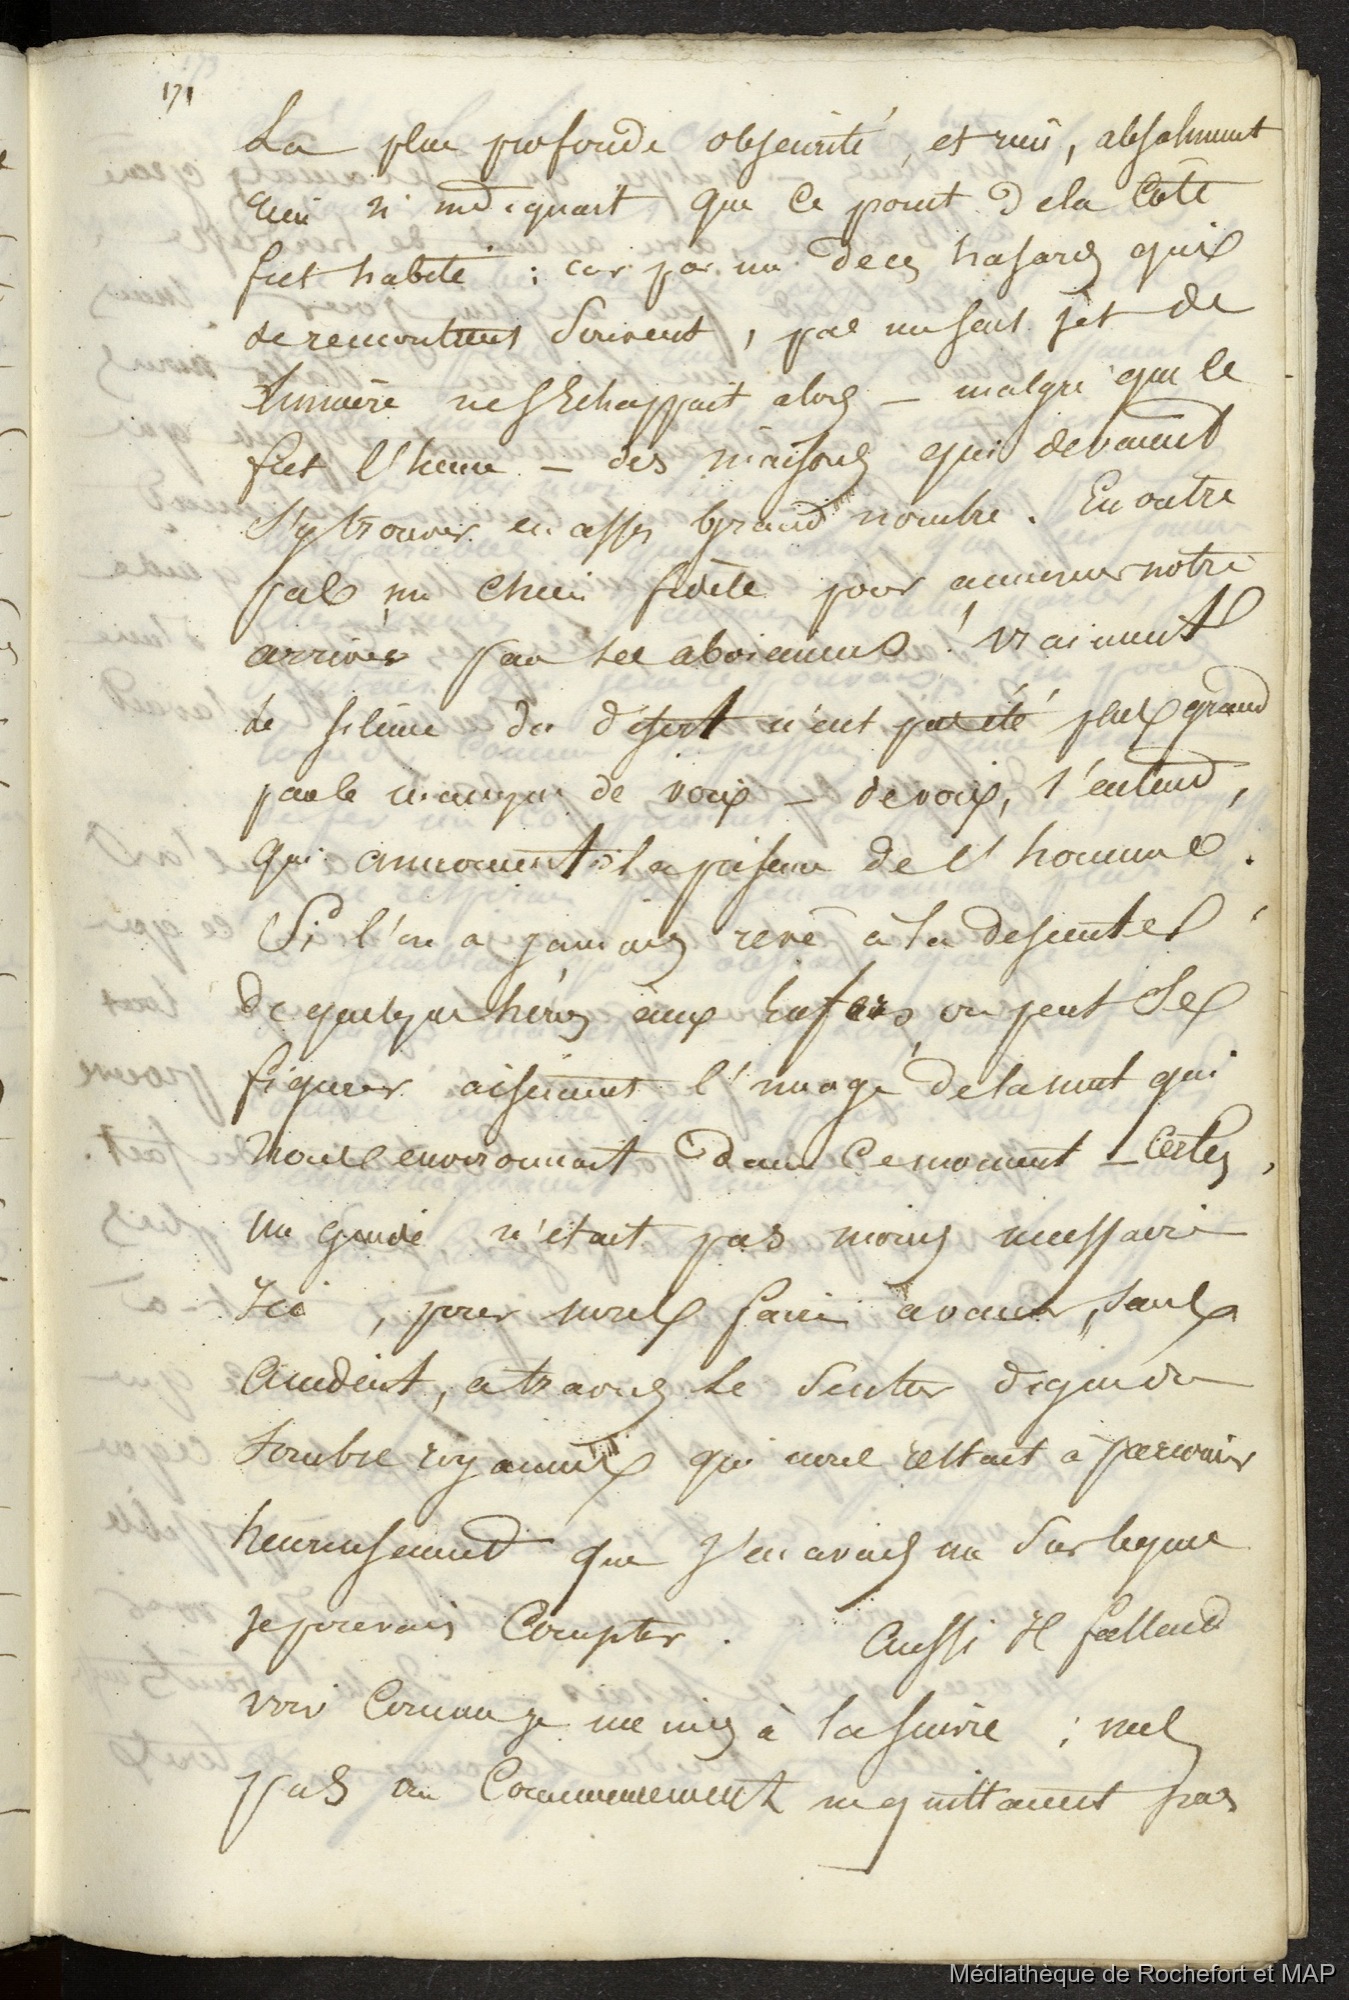 171
La plus profonde obscurité, et rien, absolument
rien n'indiquait que ce point de la Côte
fut habité ; car par un de ces hasards qui
se rencontrent Souvent, pas un seul jet de
Lumière ne s'Echappait alors — malgré que ce
fut l'heure — des maisons qui devaient
s'y trouver en asses Grand nombre. En outre
pas un chien fidèle pour annoncer notre
arrivée par ses aboiemens ! vraiment
le silence du désert n'eut pas été plus grand
par le manque de voix — de voix, s'entend,
qui annoncent la présence de l'homme.
Si l'on a jamais rêvé à la descente
de quelque héros aux Enfers, on peut Se
figurer aisément l'image de la nuit qui
nous environnait dans ce moment — Certes,
un Guide n'était pas moins nécessaire
Ici, pour nous faire avancer, sans
accident, a travers le Sentier
Sombre qui nous restait à parcourir
heureusement que j'en avais un Sur lequel
je pouvais Compter. Aussi Il fallait
voir Comme je me mis à la suivre ; mes
pas au Commencement ne quittaient pas
Médiathèque de Rochefort et MAP